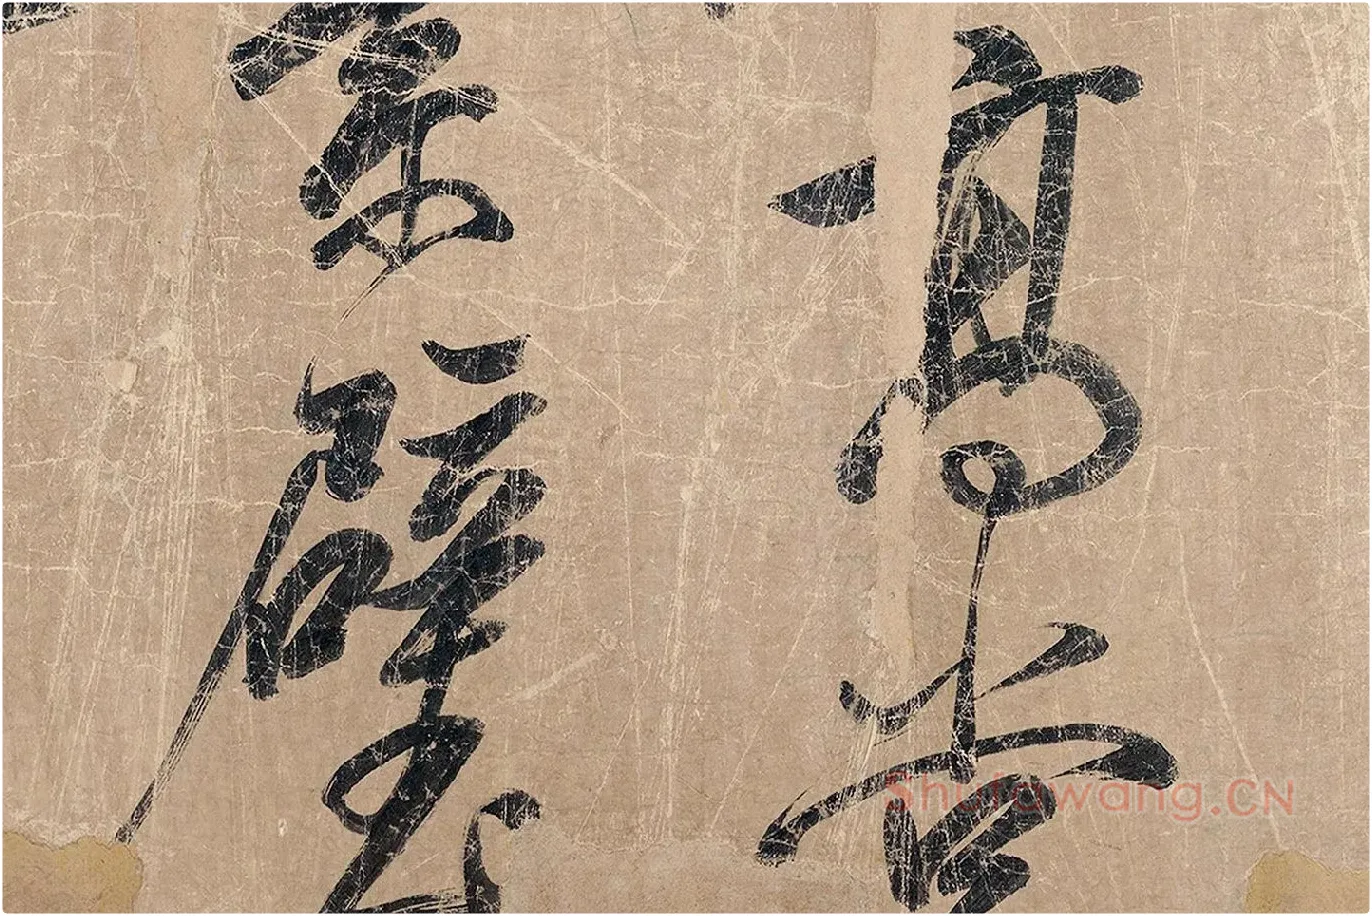 高堂
素壁
Shufawang.CN